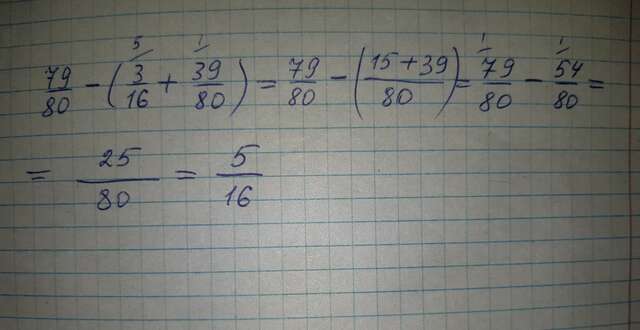 79/80 - (3/16 ⁵⁄ + 39/80 ¹⁄) = 79/80 - (15+39/80) = 79/80 ¹⁄ - 54/80 ¹⁄ =
= 25/80 = 5/16